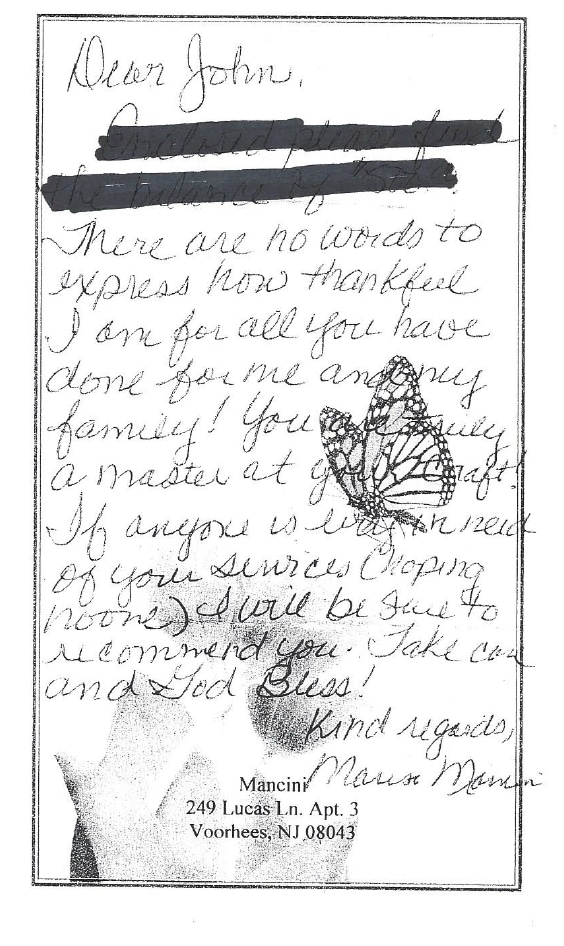 Dear John,
Enclosed please find
the balance of
There are no words to
express how thankful
I am for all you have
done for me and my
family! You are truly
a master at your craft!
If anyone is ever in need
of your services (hoping
noone) I will be sure to
recommend you. Take care
and God Bless!
Kind regards,
Mancini
Mancini
249 Lucas Ln. Apt. 3
Voorhees, NJ 08043